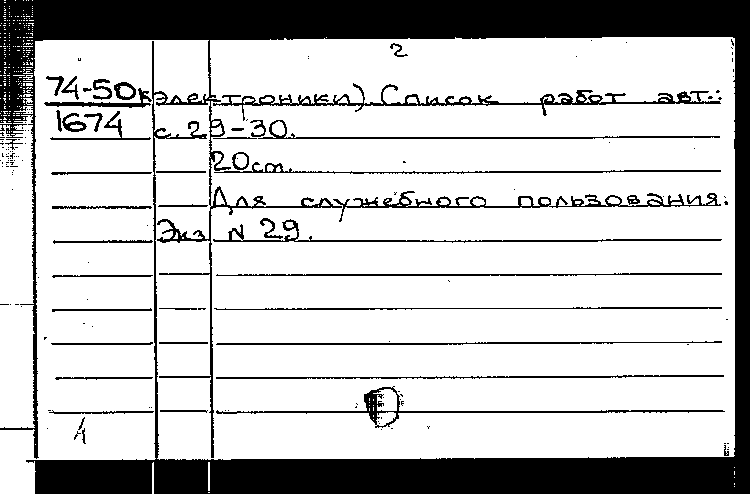 2
74-50к электроники). Список работ авт.:
1674 с. 29-30.
20 см.
Для служебного пользования.
Экз N 29.